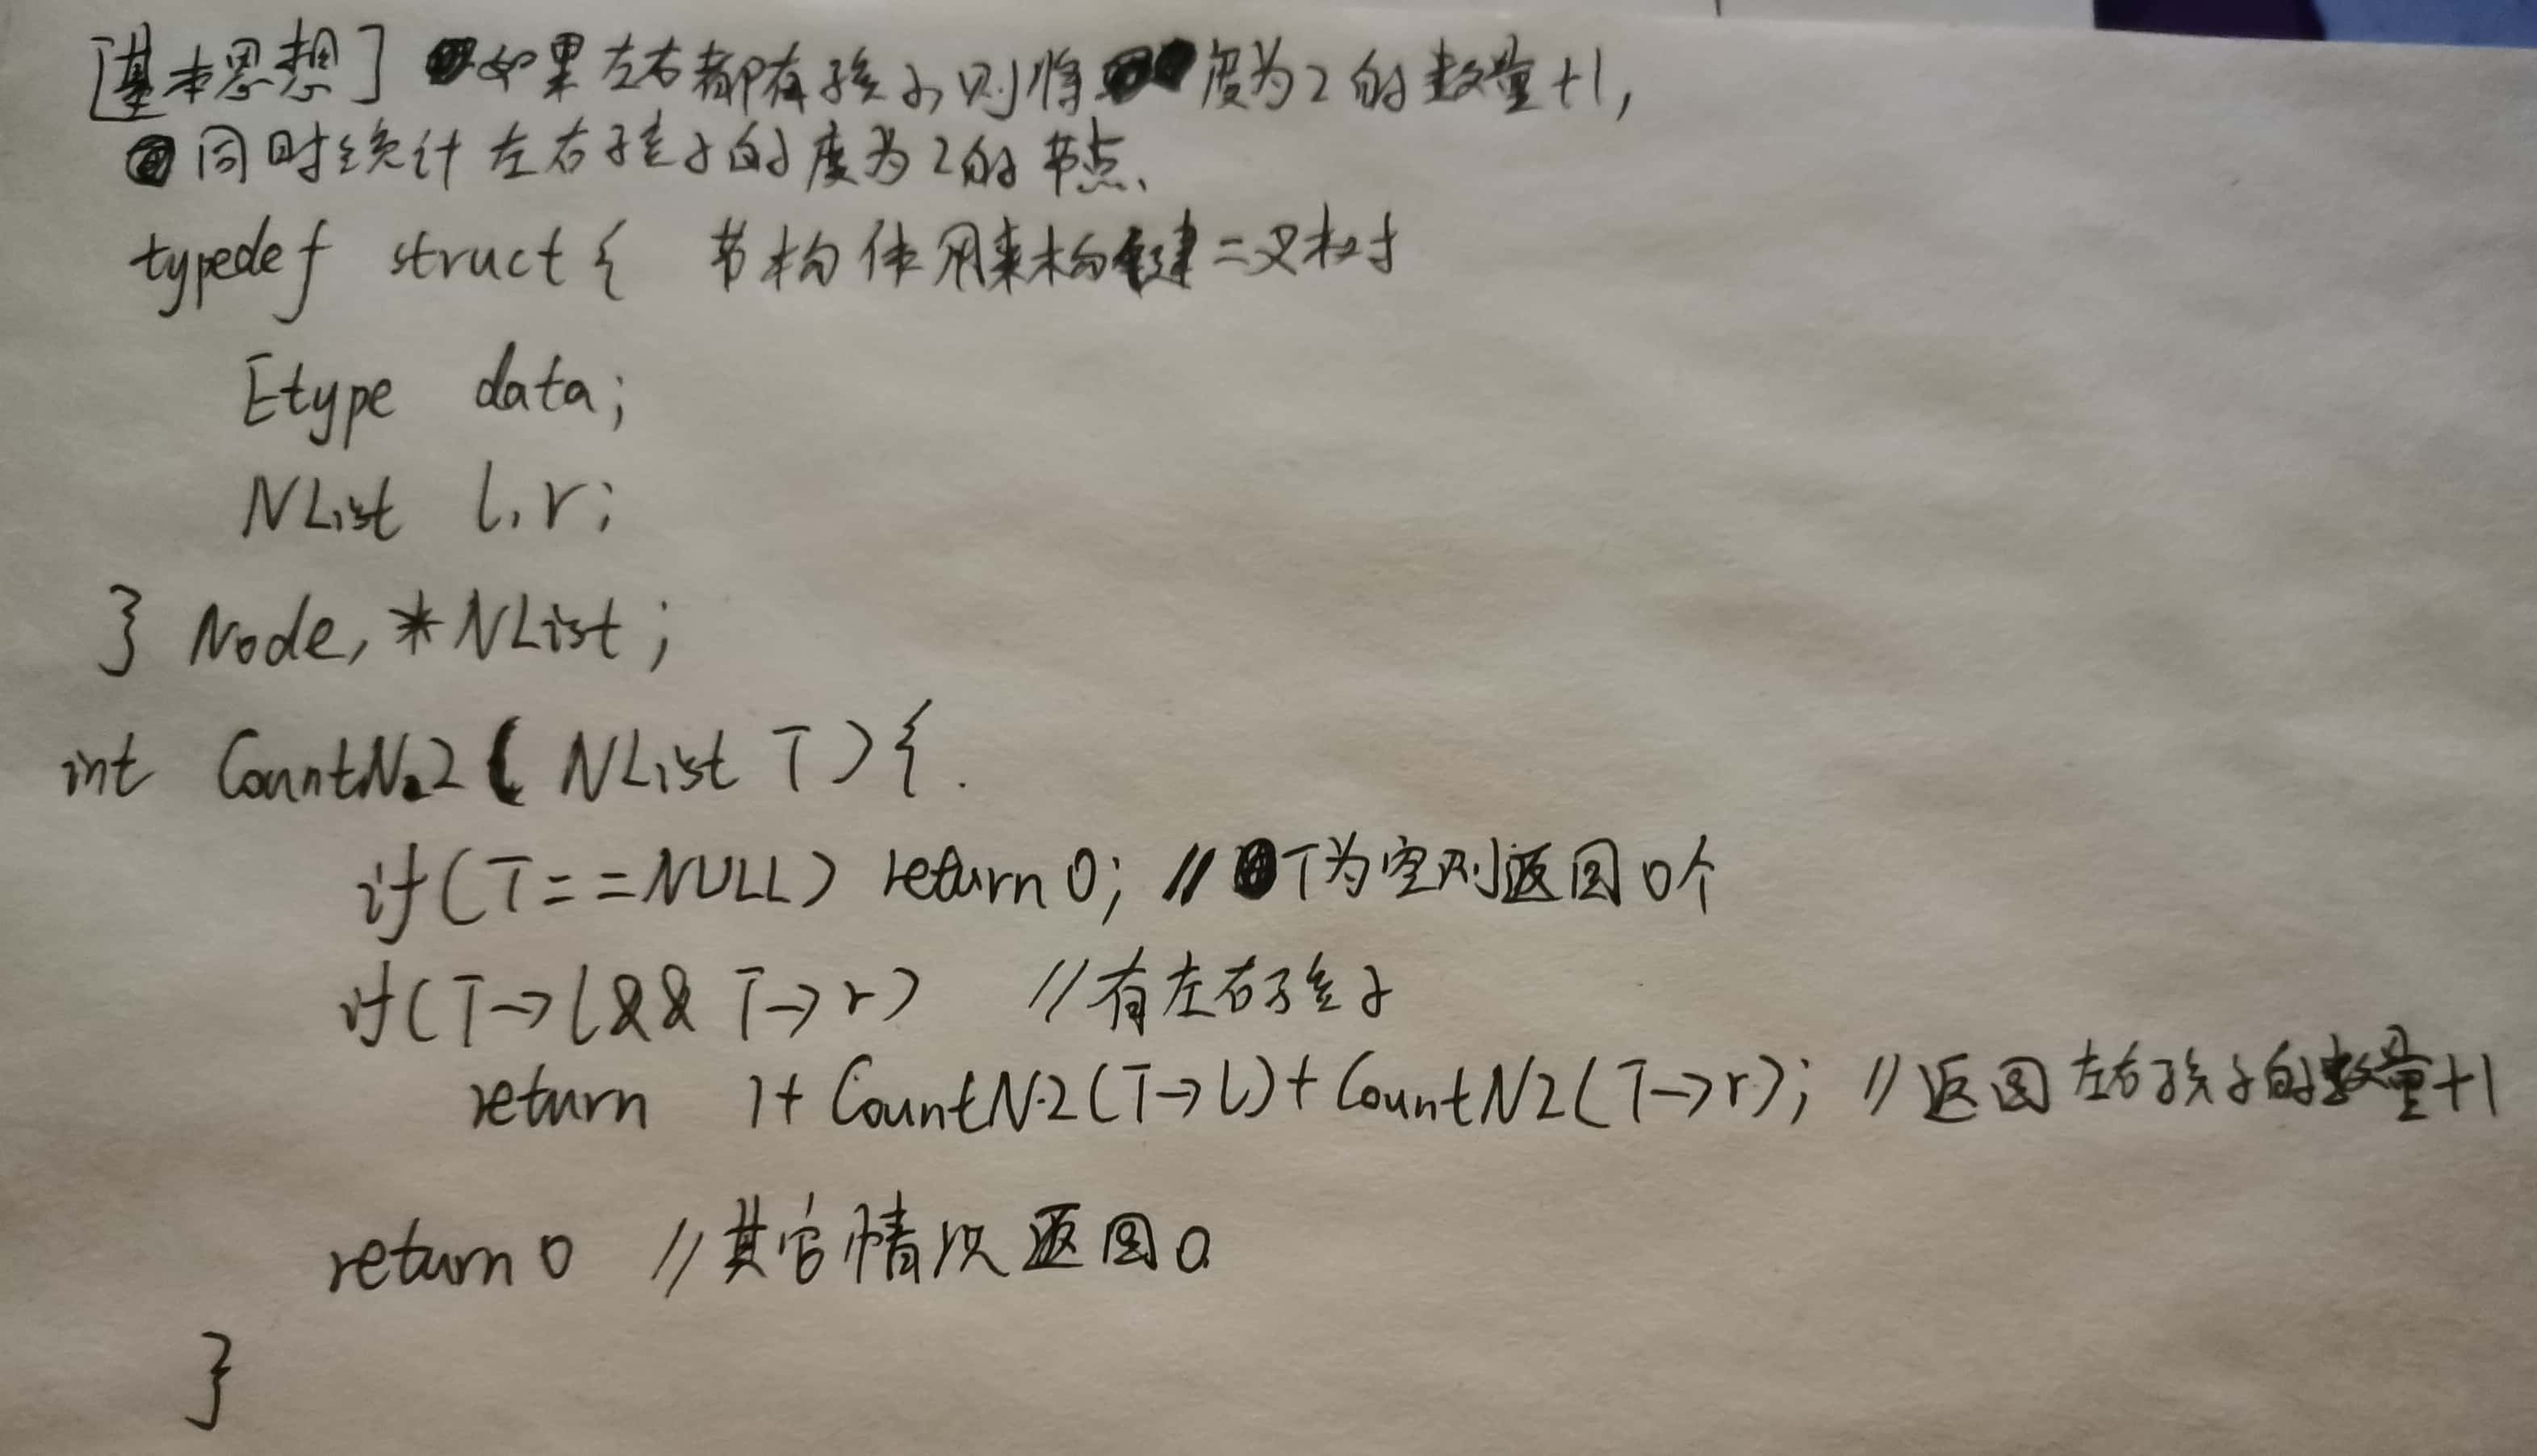 [基本思想] 如果左右都有孩子,则将度为2的数量+1,
同时统计左右孩子的度为2的节点、
typedef struct{ 节构体用来构建二叉树
Etype data;
NList l,r;
} Node,*NList;
int CountN2( NList T){
if(T==NULL) return 0; // T为空则返回0个
if(T->l&& T->r) //有左右孩子
return 1+ CountN2(T->l)+CountN2(T->r); //返回左右孩子的数量+1
return 0 //其它情况返回0
}